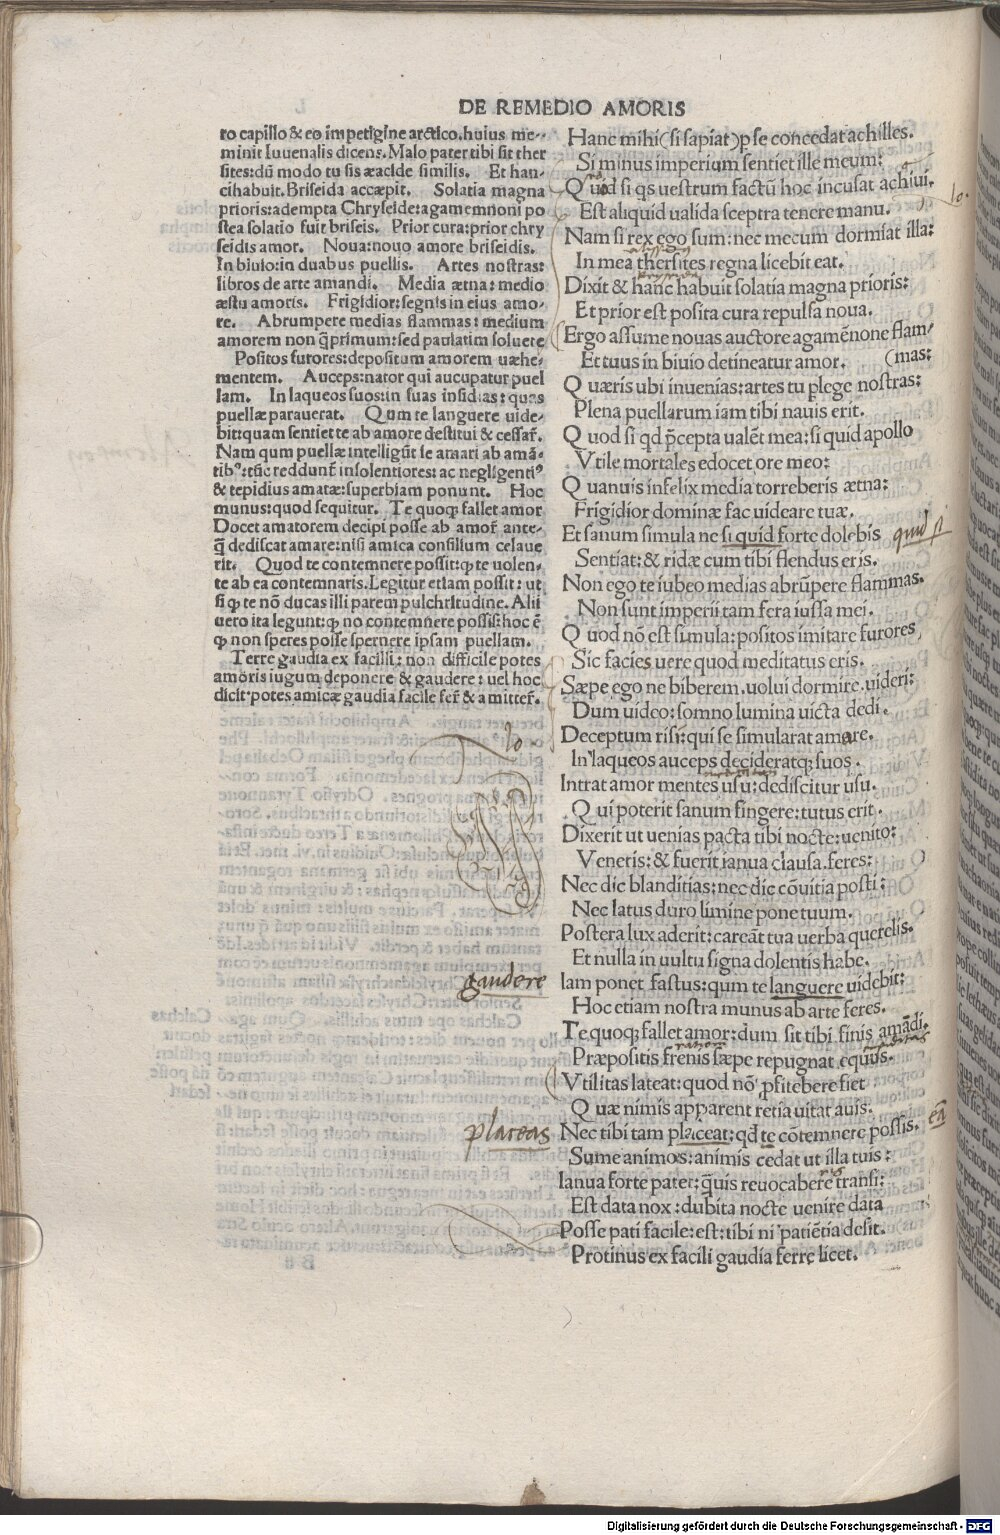 DE REMEDIO AMORIS
to capillo & eo impetigine arctico. huius me-
minit Iuuenalis dicens. Malo pater tibi sit ther
sites: dū modo tu sis æacidæ similis. Et han-
ci habuit. Briseida accæpit. Solatia magna
prioris: adempta Chryseide: agamemnoni po
stea solatio fuit briseis. Prior cura: prior chry
seidis amor. Noua: nouo amore briseidis.
In biuio: in duabus puellis. Artes nostras:
libros de arte amandi. Media ætna: medio
æstu amoris. Frigidior: segnis in eius amo-
re. Abrumpere medias flammas: medium
amorem non q̄ primum: sed paulatim soluere
Positos furores: depositum amorem uæhe-
mentem. Auceps: nator qui aucupatur puel
lam. In laqueos suos: in suas insidias: quas
puellæ parauerat. Qum te languere uide-
bit: quam sentiet te ab amore destitui & cessar̄.
Nam qum puellæ intelligūt se amari ab amā-
tibꝰ: tūc reddunt̄ insolentiores: ac negligentiꝰ
& tepidius amatæ: superbiam ponunt. Hoc
munus: quod sequitur. Te quoqꝫ fallet amor
Docet amatorem decipi posse ab amor̄ ante-
q̄ dediscat amare: nisi amica consilium celaue
rit. Quod te contemnere possit: qꝫ te uolen-
te ab ea contemnaris. Legitur etiam possit: ut
si qꝫ te nō ducas illi parem pulchritudine. Alii
uero ita legunt: qꝫ no contemnere possis: hoc ē
qꝫ non speres posse spernere ipsam puellam.
Terre gaudia ex facili: non difficile potes
amoris iugum deponere & gaudere: uel hoc
dicit potes amicæ gaudia facile fer̄ & amitter̄.
Hanc mihi (si sapiat) p se concedat achilles.
Si minus imperium sentiet ille meum:
Quod si qs uestrum factū hoc incusat achiui.
Est aliquid ualida sceptra tenere manu.
Nam si rex ego sum: nec mecum dormiat illa:
In mea thersites regna licebit eat.
Dixit & hanc habuit solatia magna prioris:
Et prior est posita cura repulsa noua.
Ergo assume nouas auctore agamēnone flam-
Et tuus in biuio detineatur amor. (mas:
Quæris ubi inuenias: artes tu plege nostras:
Plena puellarum iam tibi nauis erit.
Quod si qd p̄cepta ualēt mea: si quid apollo
Vtile mortales edocet ore meo:
Quanuis infelix media torreberis ætna:
Frigidior dominæ fac uideare tuæ.
Et sanum simula ne si quid forte dolebis
quid si
Sentiat: & ridæ cum tibi flendus eris.
Non ego te iubeo medias abrūpere flammas.
Non sunt imperii tam fera iussa mei.
Quod nō est simula: positos imitare furores
Sic facies uere quod meditatus eris.
Sæpe ego ne biberem. uolui dormire. uideri:
Dum uideo: somno lumina uicta dedi.
Deceptum risi: qui se simularat amare.
In laqueos auceps decideratqꝫ suos.
Intrat amor mentes usu: dediscitur usu.
Qui poterit sanum fingere: tutus erit.
Dixerit ut uenias pacta tibi nocte: uenito:
Veneris: & fuerit ianua clausa. feres:
Nec dic blanditias: nec dic cōuitia posti:
Nec latus duro limine pone tuum.
Postera lux aderit: careāt tua uerba querelis.
Et nulla in uultu signa dolentis habe.
gaudere
Iam ponet fastus: qum te languere uidebit:
Hoc etiam nostra munus ab arte feres.
Te quoqꝫ fallet amor: dum sit tibi finis amādi.
Præpositis frenis sæpe repugnat equus.
Vtilitas lateat: quod nō ꝓfitebere fiet
Quæ nimis apparent retia uitat auis.
placeas
Nec tibi tam placeat: qd te cōtemnere possis.
eā
Sume animos: animis cedat ut illa tuis:
Ianua forte pater: q̄uis reuocabere transi:
Est data nox: dubita nocte uenire data
Posse pati facile: est: tibi ni patiētia desit.
Protinus ex facili gaudia ferre licet.
Digitalisierung gefördert durch die Deutsche Forschungsgemeinschaft - DFG